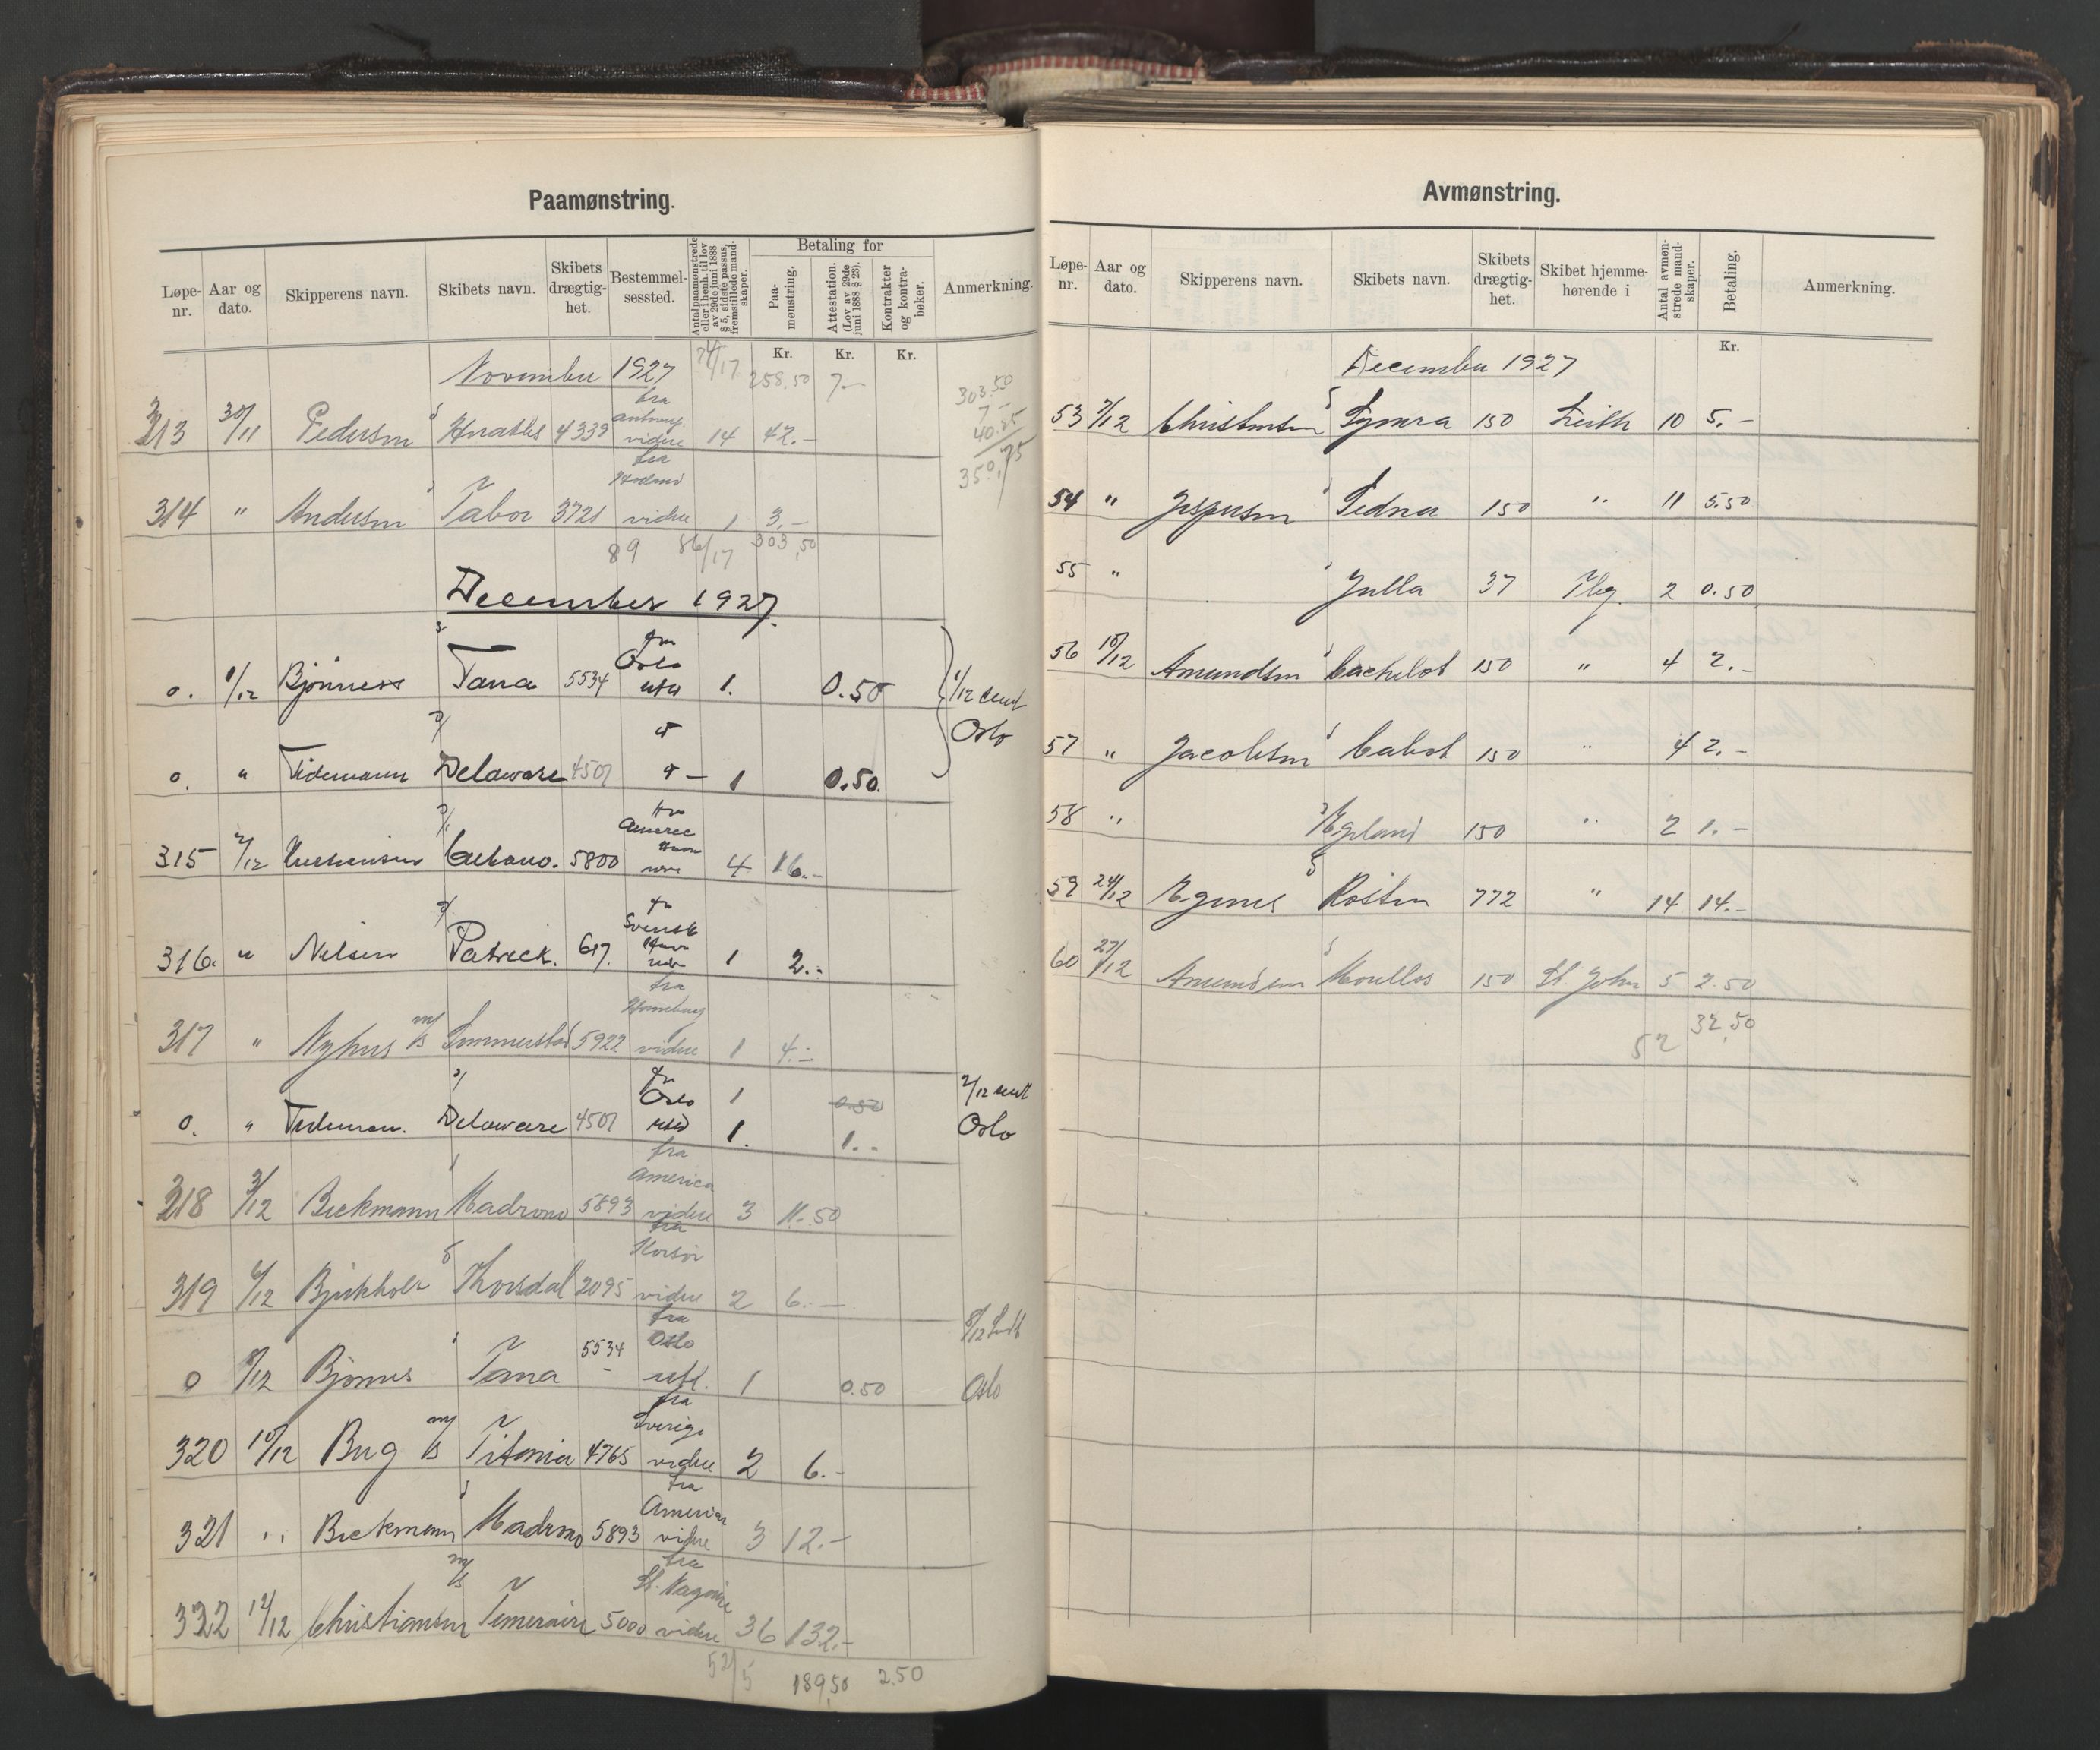 Paamønstring.
Løpe-nr. Aar og dato. Skipperens navn. Skibets navn. Skibets drægtig-het. Bestemmel-sessted. Antal paamønstrede eller i henh. til lov av 29de juni 1888 § 5, sidste passus, fremstillede mand-skaper. Betaling for Paa-mønstring. Attestation. (Lov av 29de juni 1888 § 28). Kontrakter og kontra-bøker. Anmerkning.
Kr. Kr. Kr.
November 1927 74/17 258.50 7.-
303.50
7 -
40.25
350,75
313 30/11 Pedersen 4339 fra videre 14 42.-
314 " Andersen Tabor 3721 fra videre 1 3.-
89 86/17 303,50
December 1927.
0. 1/12 Bjønness Tana 5534 fra Oslo 1. 0.50 1/12 sendt Oslo
0. " Tidemann Delaware 4507 1 0.50.
315 2/12 Cubano. 5800 4 16.-
316. " Nelsen Patrick. 617. fra Svensk 1 2.-
317 " Nyhus m/s Sommerstad 5922 fra videre 1 4.-
0. " Delaware 4507 fra Oslo 1 0.50 2/12 sendt
1. 1.- Oslo
318 3/12 Beckmann Madrono 5893 fra America videre 3 11.50
319 6/12 Thorsdal 2095 fra Korsør videre 2 6.-
0 8/12 Bjønnes Tana 5534 fra Oslo 1 0.50 8/12 sendt Oslo
320 10/12 Bug m/s Titania 4765 fra Sverige videre 2 6.-
321 " Beckmann Madrono 5893 fra America videre 3 12.-
322 12/12 Christiansen m/s Temeraire 5000 fra videre 36 132.-
52/5 189,50 2.50
Avmønstring.
Løpe-nr. Aar og dato. Skipperens navn. Skibets navn. Skibets drægtig-het. Skibet hjemme-hørende i Antal avmøn-strede mand-skaper. Betaling. Anmerkning.
Kr.
December 1927
53 7/12 Christensen Symra 150 Leith 10 5.-
54 " Jespersen Sedna 150 " 11 5.50
55 " Julla 37 Tbg. 2 0.50
56 10/12 Amundsen Cachelot 150 " 4 2.-
57 " Jacobsen Cabot 150 " 4 2.-
58 " 150 " 2 1.-
59 24/12 772 " 14 14.-
60 27/12 Amundsen 150 St. John 5 2.50
52 32,50